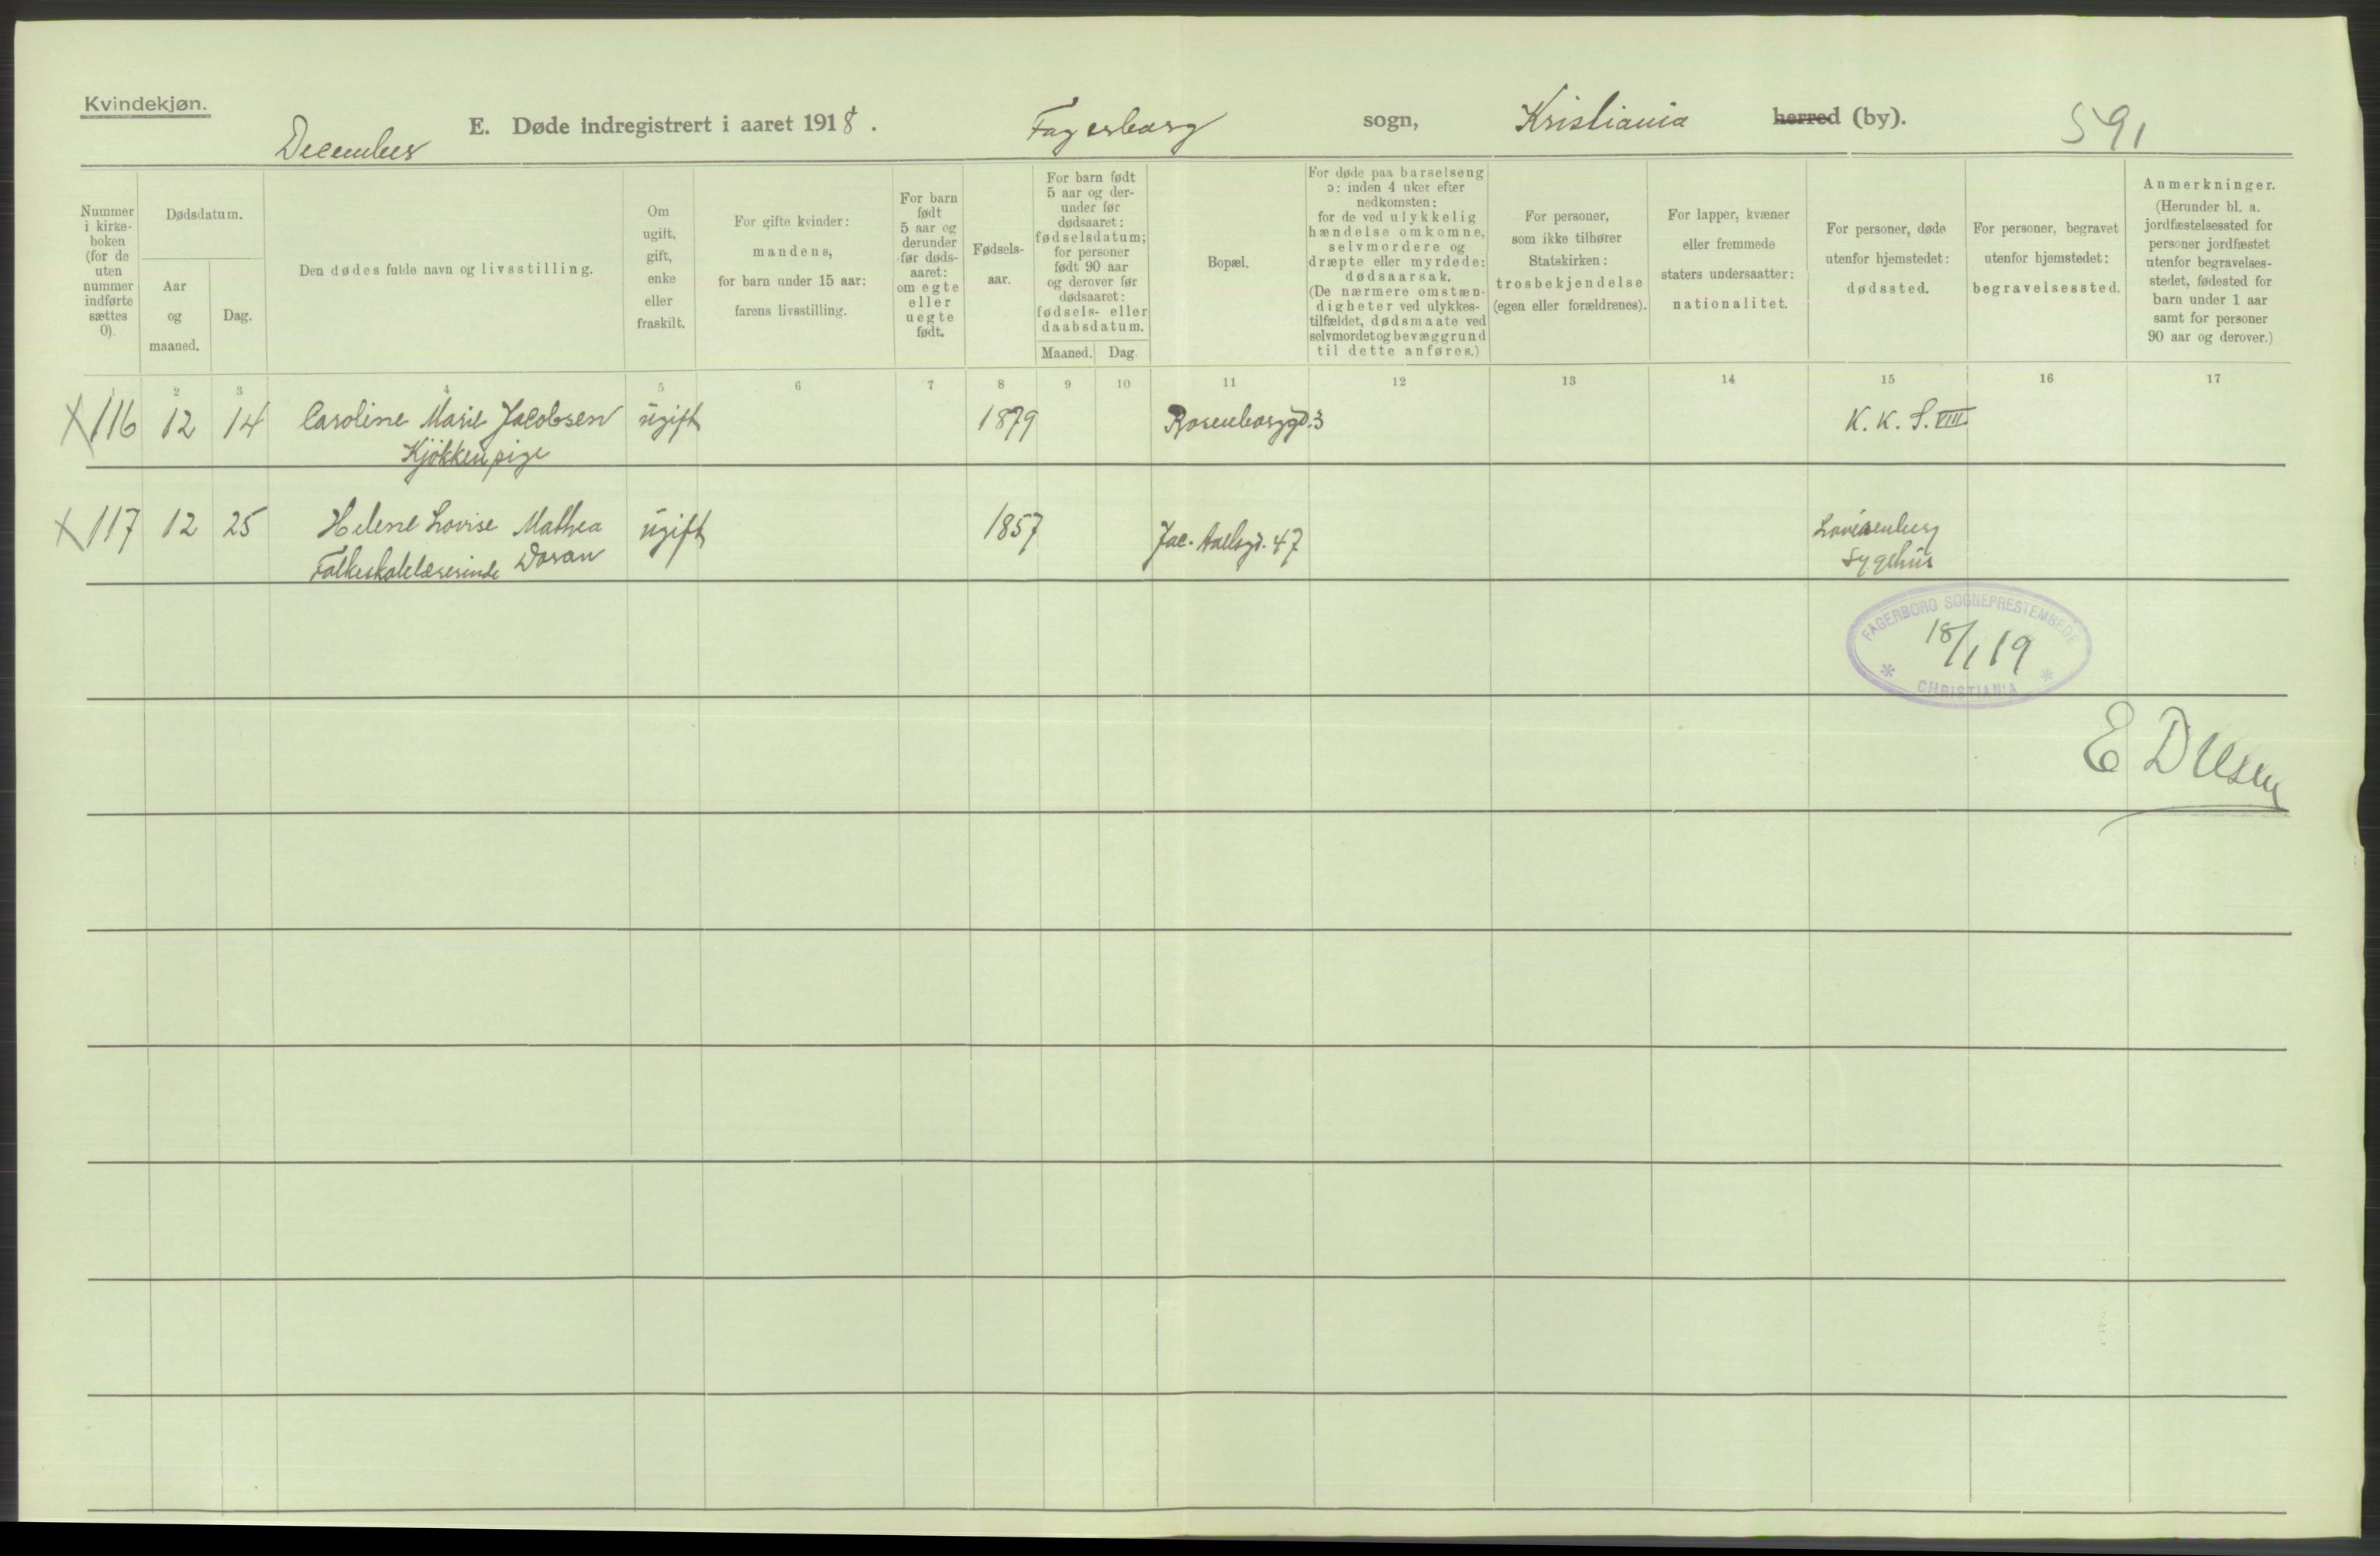 Kvindekjøn.
December
E. Døde indregistrert i aaret 1918.
Fagerborg sogn, Kristiania herred (by).
591
Nummer i kirkeboken (for de uten nummer indførte sættes 0).
Dødsdatum.
Aar og maaned.
Dag.
Den dødes fulde navn og livsstilling.
Om ugift, gift, enke eller fraskilt.
For gifte kvinder: mandens, for barn under 15 aar: farens livsstilling.
For barn født 5 aar og derunder før dødsaaret: om egte eller uegte født.
Fødselsaar.
For barn født 5 aar og derunder før dødsaaret: fødselsdatum; for personer født 90 aar og derover før dødsaaret: fødsels- eller daabsdatum.
Maaned.
Dag.
Bopæl.
For døde paa barselseng ɔ: inden 4 uker efter nedkomsten: for de ved ulykkelig hændelse omkomne, selvmordere og dræpte eller myrdede: dødsaarsak. (De nærmere omstændigheter ved ulykkestilfældet, dødsmaate ved selvmordet og bevæggrund til dette anføres.)
For personer, som ikke tilhører Statskirken: trosbekjendelse (egen eller forældrenes).
For lapper, kvæner eller fremmede staters undersaatter: nationalitet.
For personer, døde utenfor hjemstedet: dødssted.
For personer, begravet utenfor hjemstedet: begravelsessted.
Anmerkninger. (Herunder bl. a. jordfæstelsessted for personer jordfæstet utenfor begravelsesstedet, fødested for barn under 1 aar samt for personer 90 aar og derover.)
2 3 4 5 6 7 8 9 10 11 12 13 14 15 16 17
X 116 12 14 Caroline Marie Jacobsen ugift 1879 Rosenborggd. 3 K. K. S. VIII.
Kjökkenpige
X 117 12 25 Helene Lovise Mathea ugift 1857 Jac. Aallsgd. 47 Lovisenberg
Folkeskolelærerinde Dovan Sygehus
FAGERBORG SOGNEPRESTEMBEDE
18/1 19
* CHRISTIANIA *
E